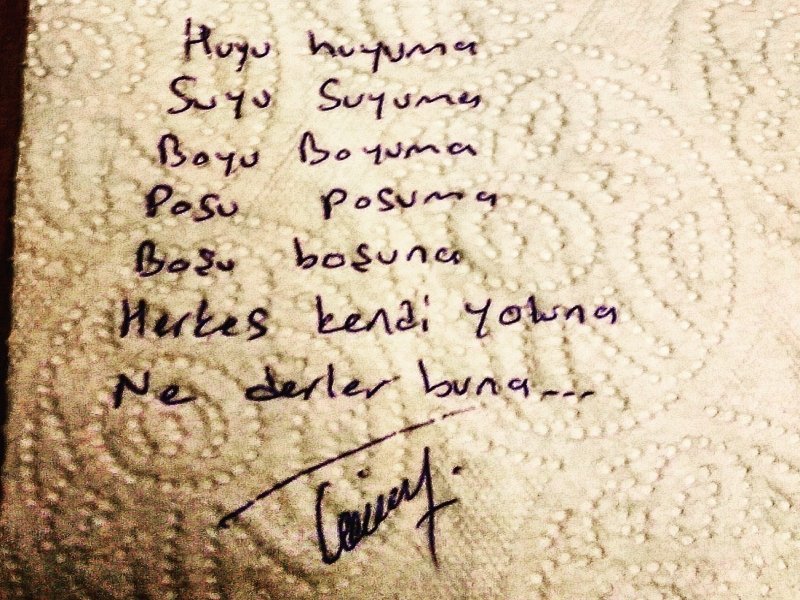 Huyu huyuma
Suyu Suyuma
Boyu Boyuma
Posu posuma
Boşu boşuna
Herkes kendi yoluna
Ne derler buna...